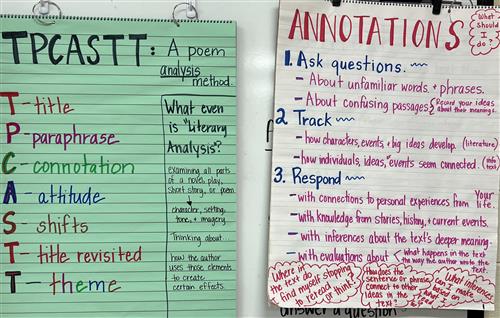 TPCASTT: A poem
analysis
method.
T-title
P-paraphrase
C-connotation
A-attitude
S-shifts
T-title revisited
T-theme
What even
is "Literary
Analysis"?
Examining all parts
of a novel, play,
short story, or poem.
character, setting,
tone, + imagery
Thinking about...
how the author
uses those elements
to create
certain effects.
ANNOTATIONS
What
should
I
do?
1. Ask questions.
- About unfamiliar words + phrases.
- About confusing passages
Record your ideas
about their meanings.
2 Track
- how characters, events, + big ideas develop. (literature)
- how individuals, ideas, + events seem connected. (info text)
3. Respond
- with connections to personal experiences from Your life.
- with knowledge from stories, history, + current events.
- with inferences about the text's deeper meaning.
- with evaluations about
what happens in the text
the way the author wrote the text.
Where in
the text do I
find myself stopping
to reread
or think?
How does the
sentence or phrase
connect to other
ideas in the
text?
What inferences
can I make
based on
what
answer a question